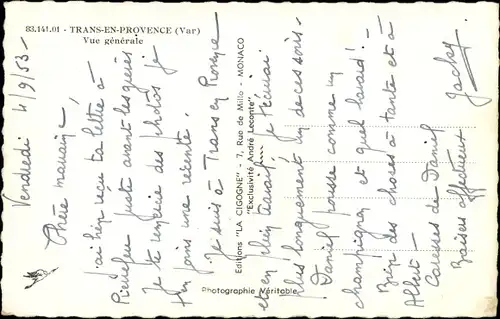 83.141.01 - TRANS-EN-PROVENCE (Var)
Vue générale
Vendredi 4/9/53 -
Chère mamaine,
j'ai bien reçu ta lettre à
Pierrefeu juste avant les grèves
Je te remercie des photos je
t'en joins une récente.
Je suis à Trans en Provence
et en plein travail... je t'écrirai
plus longuement un de ces soirs -
Daniel pousse comme un
champignon et quel bavard ! -
Bien des choses à tante et à
Albert -
Caresses de Daniel
Baisers affectueux
Jacky
Editions "LA CIGOGNE" - 7, Rue de Millo - MONACO
"Exclusivité André Leconte"
Photographie Véritable